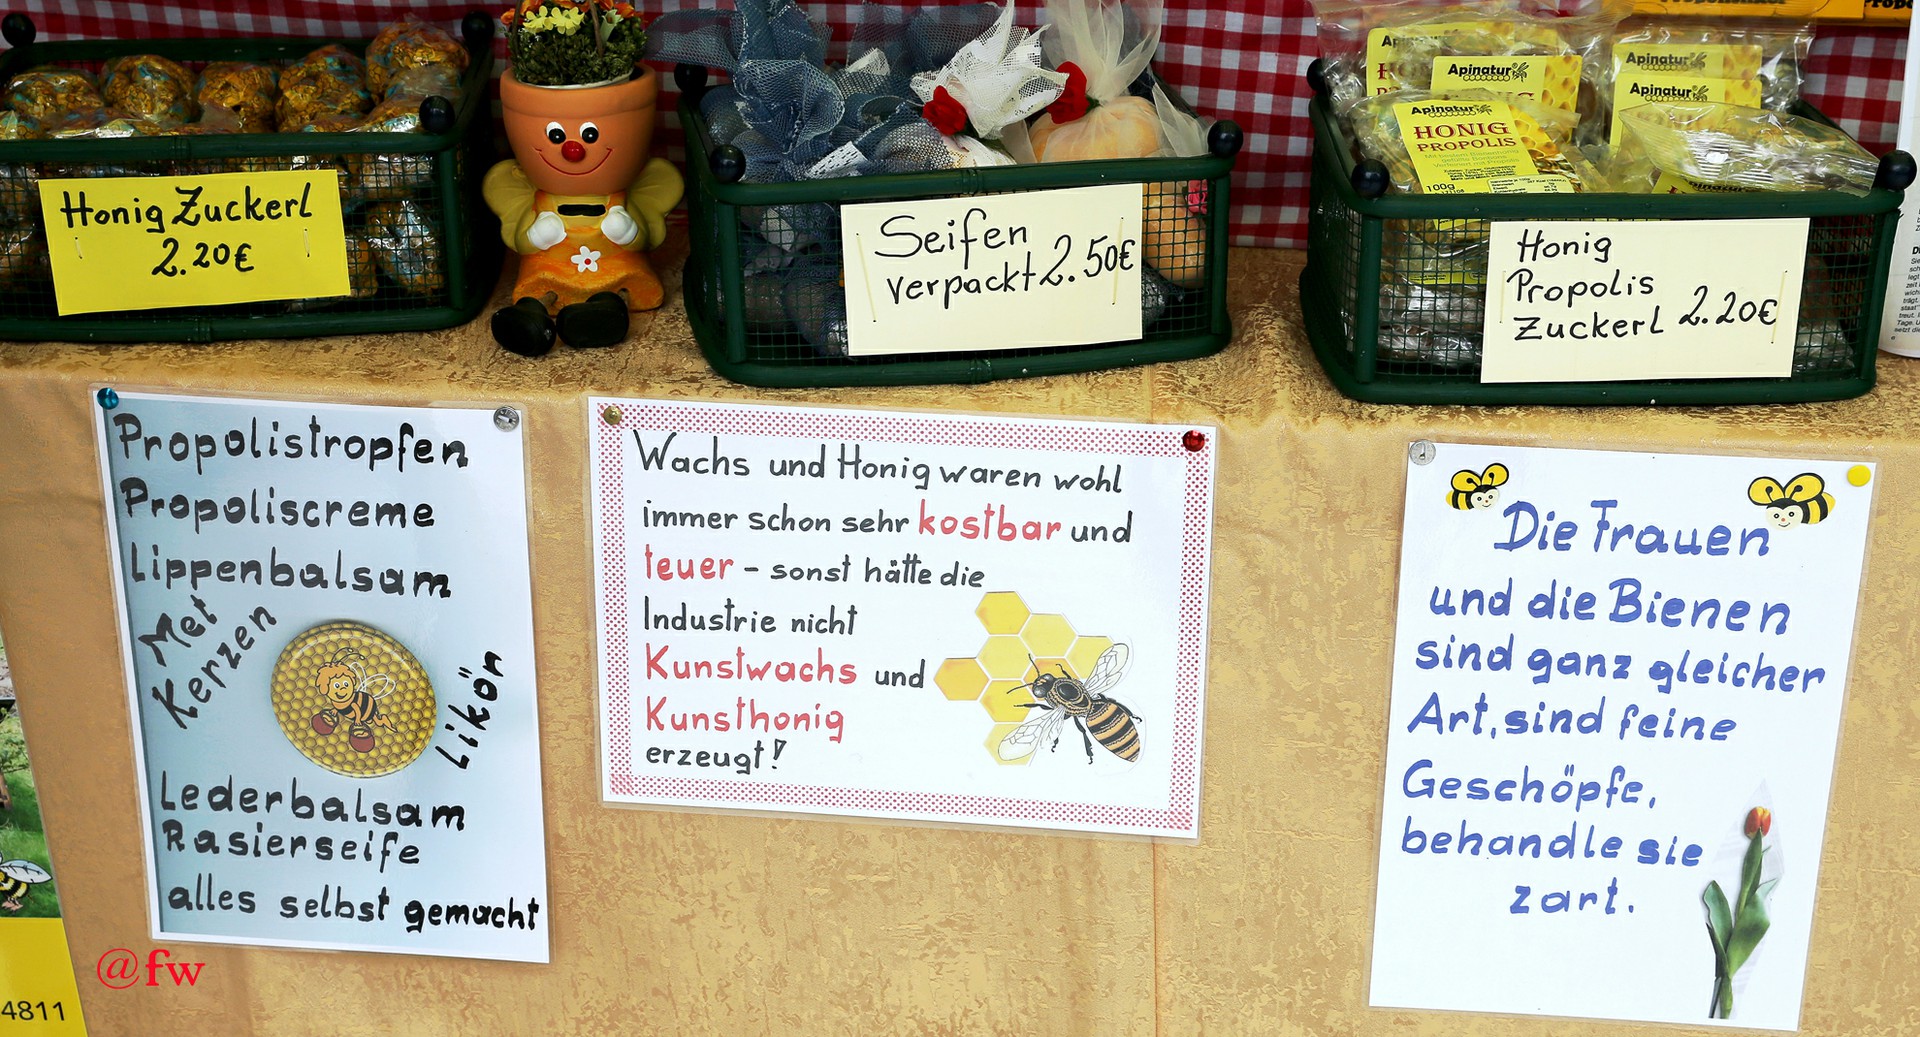 Honig Zuckerl
2.20€
Seifen
verpackt 2.50€
Apinatur
Apinatur
Apinatur
Apinatur
Apinatur
HONIG
PROPOLIS
100g
Honig
Propolis
Zuckerl 2.20€
Propolistropfen
Propoliscreme
Lippenbalsam
Met
Kerzen
Likön
Lederbalsam
Rasierseife
alles selbst gemacht
Wachs und Honig waren wohl
immer schon sehr kostbar und
teuer - sonst hätte die
Industrie nicht
Kunstwachs und
Kunsthonig
erzeugt!
Die Frauen
und die Bienen
sind ganz gleicher
Art, sind feine
Geschöpfe,
behandle sie
zart.
@fw
4811